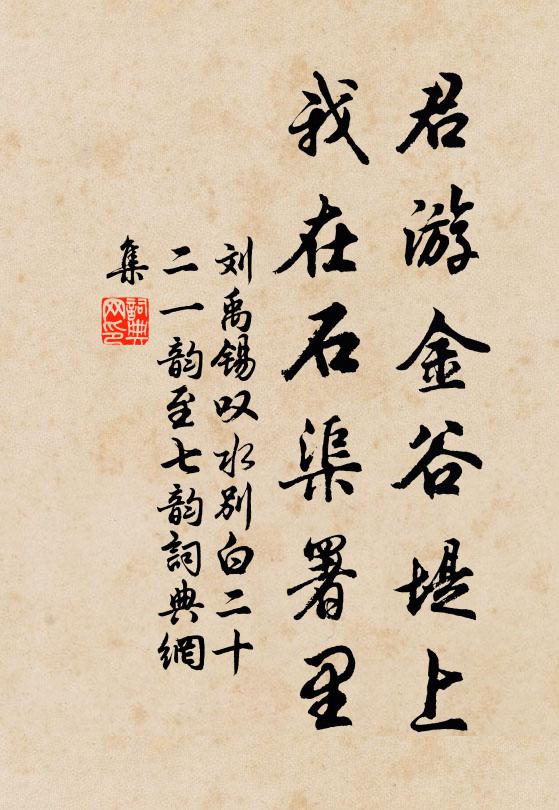 君游金谷堤上
我在石渠署里
刘禹锡叹水别白二十
二一韵至七韵詞典網
集
詞典网印